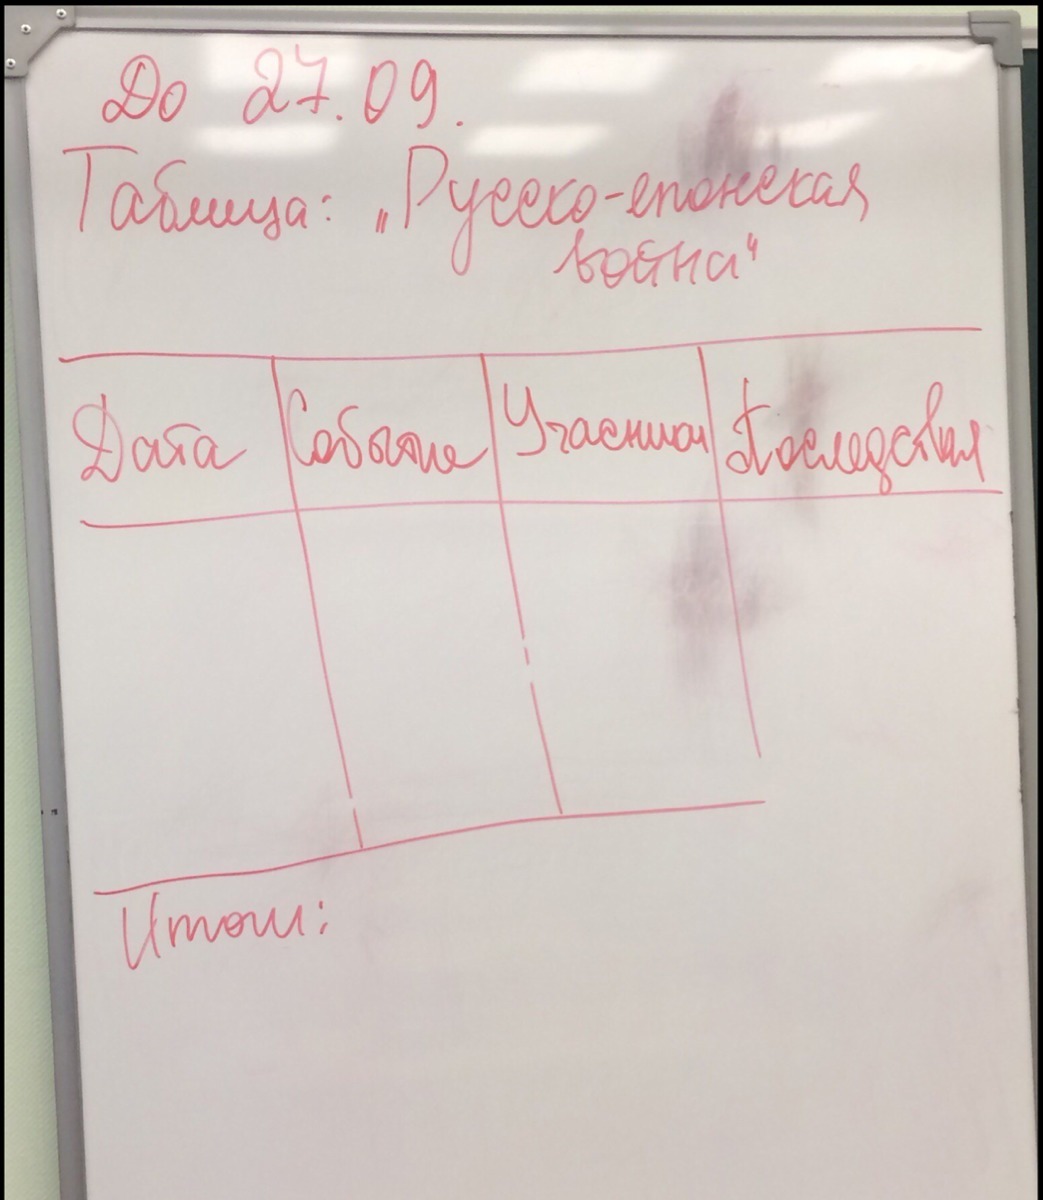 До 27.09.
Таблица: „Русско-епонская
война“
Дата Событие Учасники Последствия
Итоги: